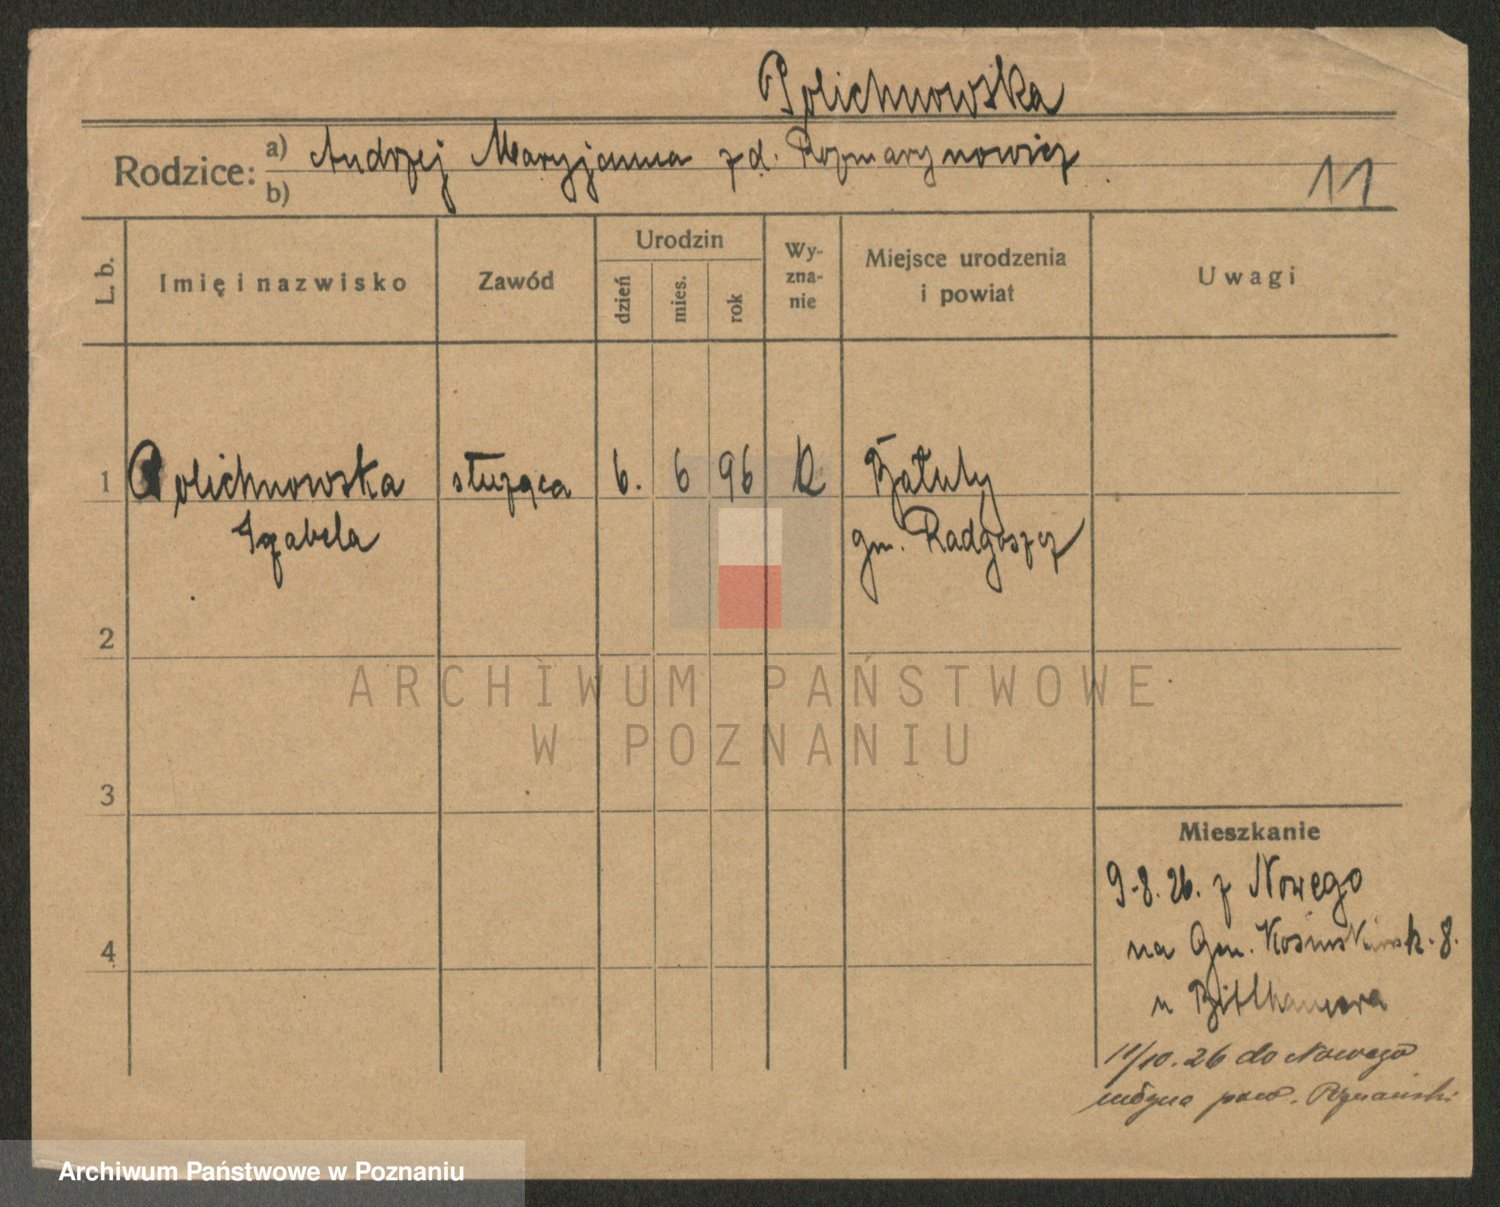 Polichnowska
Rodzice: a) Andrzej Maryjanna z d. Rozmarynowicz
b)
11
L. b. Imię i nazwisko Zawód Urodzin dzień mies. rok Wyzna-nie Miejsce urodzenia i powiat Uwagi
1 Polichnowska służąca 6. 6 96 k Bałuty
Izabela gm. Radgoszcz
2
ARCHIWUM PAŃSTWOWE
W POZNANIU
3
Mieszkanie
9.8.26. z Nowego
na Gm. 8.
4
u
11/10.26 do Nowego
młyna pow. Poznański
Archiwum Państwowe w Poznaniu